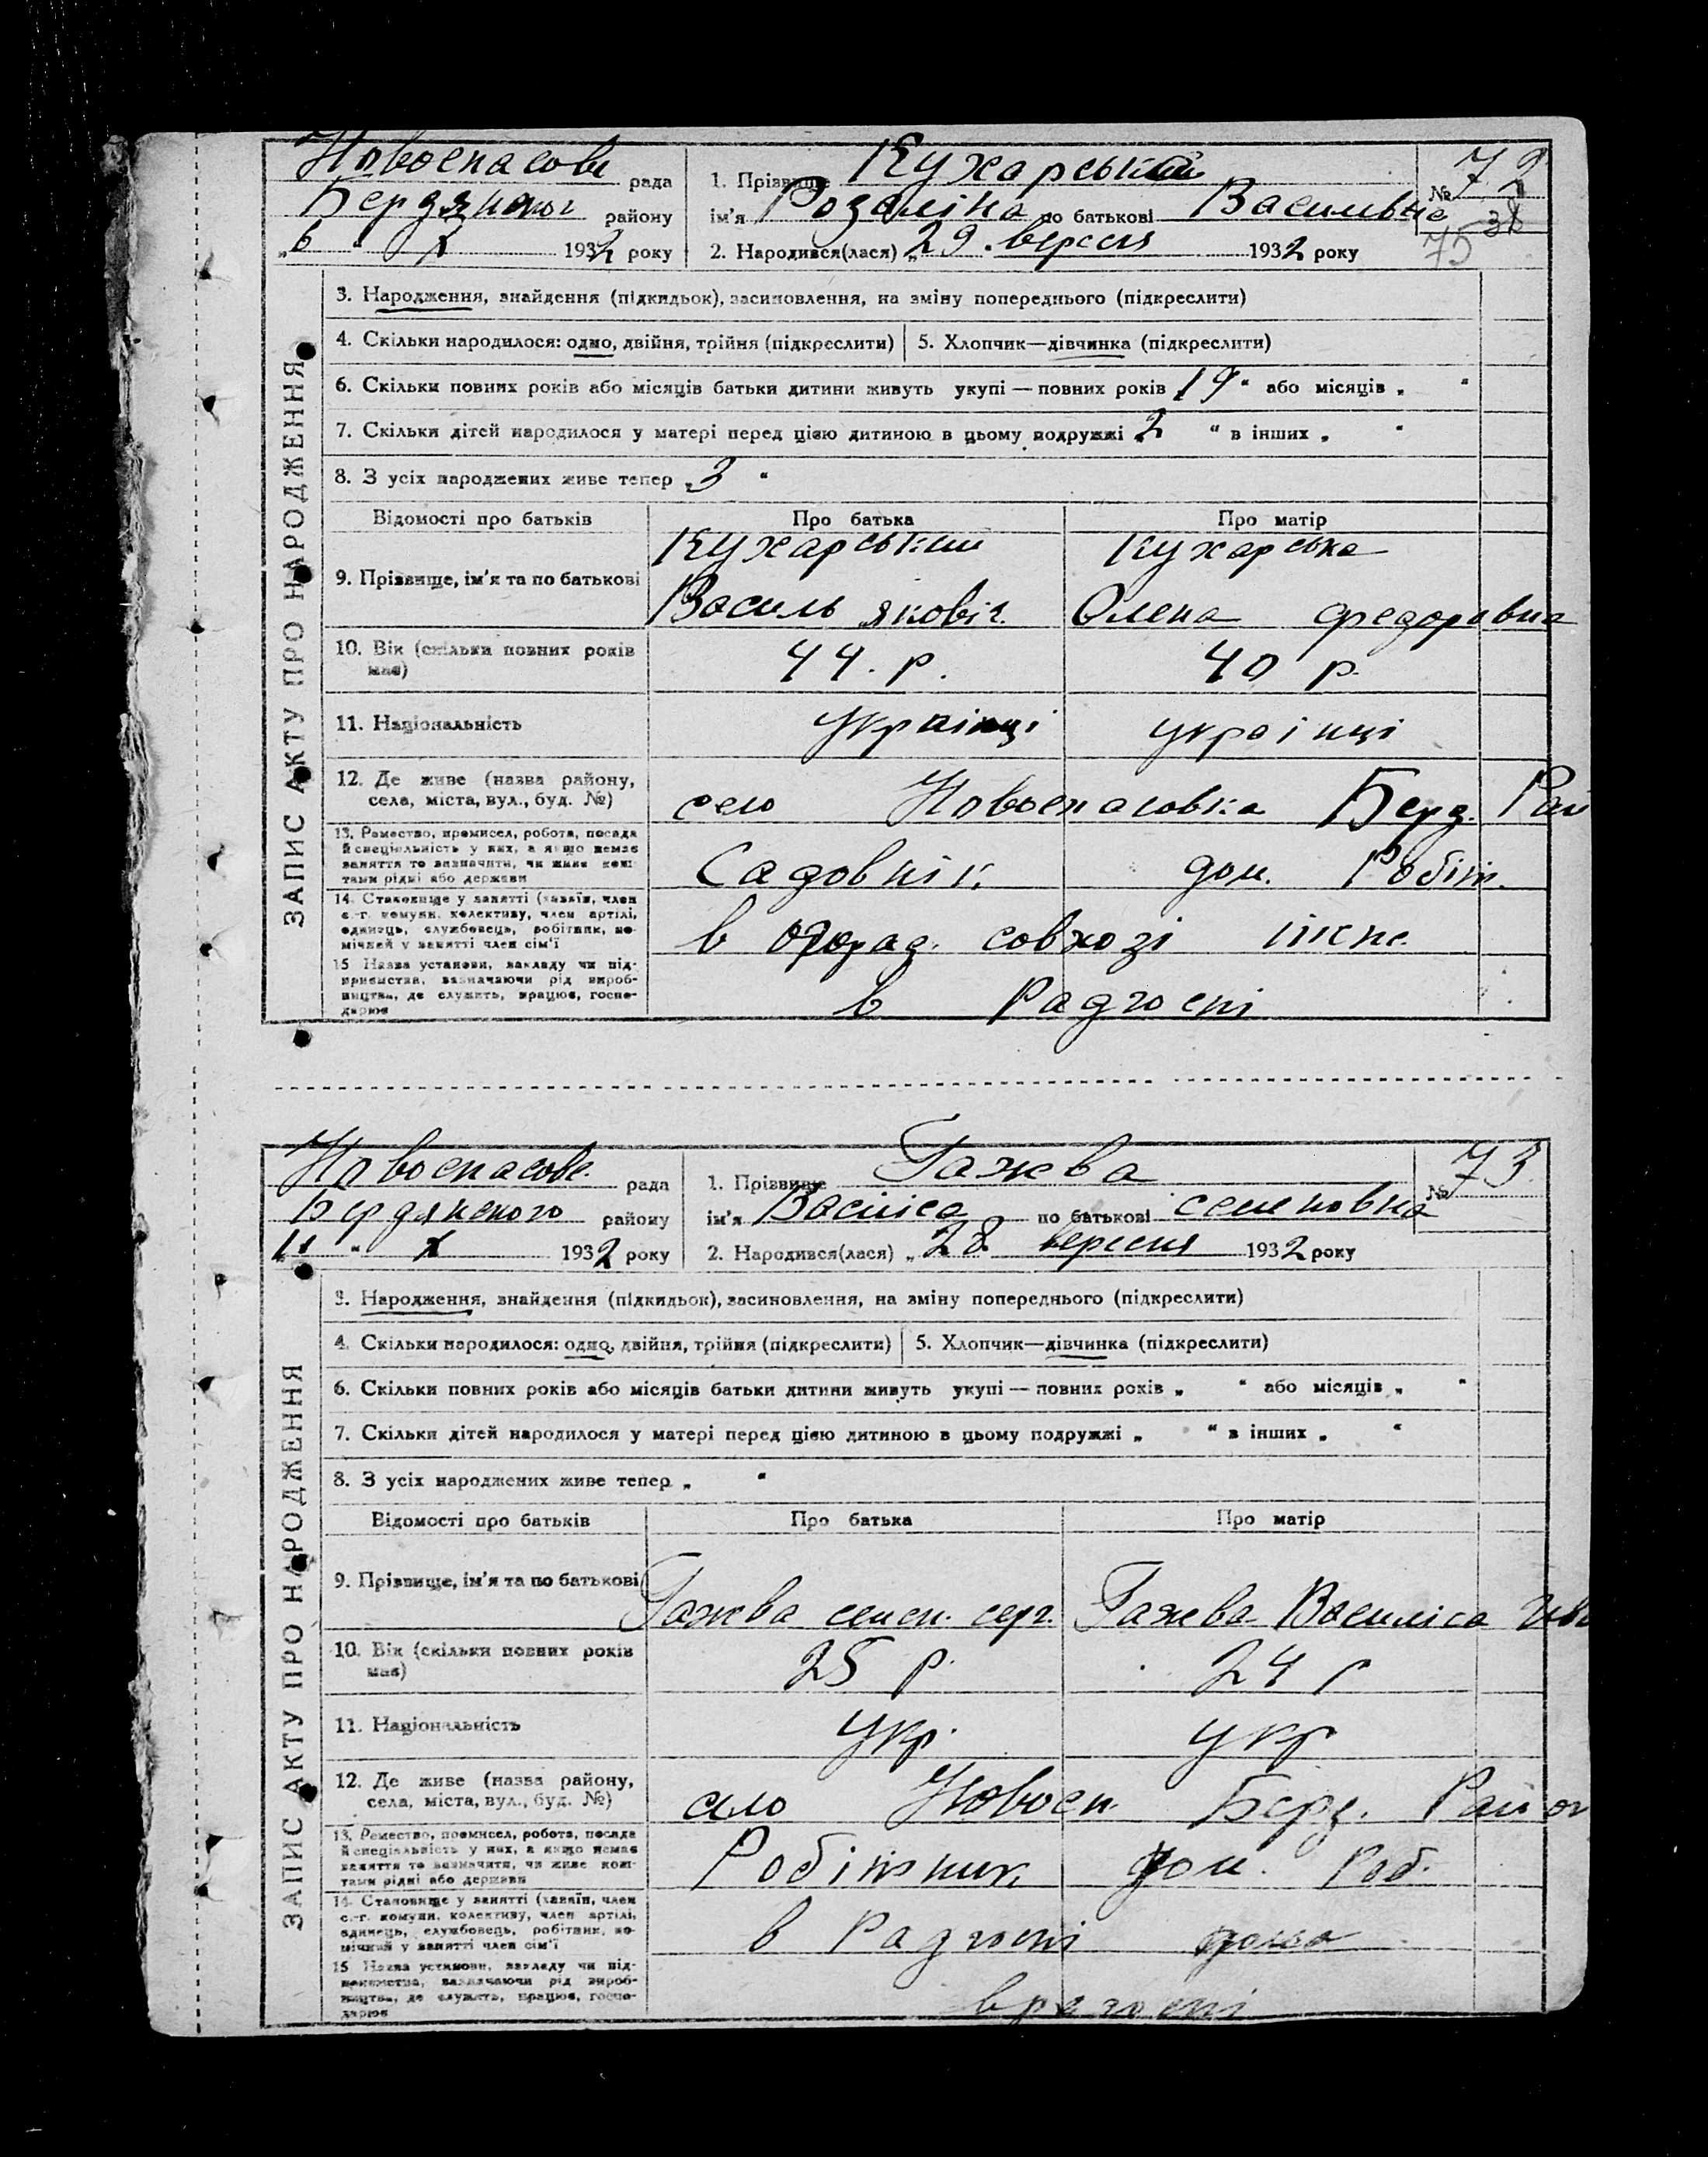 Новоспасове рада
1. Прізвище Кухарський
№ 72
38
75
Бердянског району
ім'я Розаліна по батькові Васильвна
„6 “ X 1932 року
2. Народився(лася) „29. вересня 1932 року
ЗАПИС АКТУ ПРО НАРОДЖЕННЯ
3. Народження, знайдення (підкидьок), засиновлення, на зміну попереднього (підкреслити)
4. Скільки народилося: одно, двійня, трійня (підкреслити) 5. Хлопчик—дівчинка (підкреслити)
6. Скільки повних років або місяців батьки дитини живуть укупі — повних років 19 “ або місяців „ “
7. Скільки дітей народилося у матері перед цією дитиною в цьому подружжі „2 “ в інших „ “
8. З усіх народжених живе тепер „3 “
Відомості про батьків Про батька Про матір
Кухарський Кухарська
9. Прізвище, ім'я та по батькові
Василь Яковіч. Олена Федоровна
10. Вік (скільки повних років має) 44. р. 40 р.
11. Національність українці українці
12. Де живе (назва району, села, міста, вул., буд. №)
село Новоспасовка Берд. Рай
13. Ремество, промисел, робота, посада й спеціяльність у них, а якщо немає заняття то визначити, чи живе коштами рідні або держави
Садовнік дом. Робіт.
14. Становище у занятті (хазяїн, член с.-г. комуни, колективу, член артілі, одинець, службовець, робітник, помічний у занятті член сім'ї
в совхозі
15 Назва установи, закладу чи підприємства, зазначаючи рід виробництва, де служить, працює, господарює
в Радгоспі
Новоспасове. рада
1. Прізвище Гажва
№ 73
Бердянского району
ім'я Васіліса по батькові семеновна
11 “ X 1932 року
2. Народився(лася) „28. вересня 1932 року
ЗАПИС АКТУ ПРО НАРОДЖЕННЯ
3. Народження, знайдення (підкидьок), засиновлення, на зміну попереднього (підкреслити)
4. Скільки народилося: одно, двійня, трійня (підкреслити) 5. Хлопчик—дівчинка (підкреслити)
6. Скільки повних років або місяців батьки дитини живуть укупі — повних років „ “ або місяців „ “
7. Скільки дітей народилося у матері перед цією дитиною в цьому подружжі „ “ в інших „ “
8. З усіх народжених живе тепер „ “
Відомості про батьків Про батька Про матір
9. Прізвище, ім'я та по батькові
Гажва семен. серг. Гажва Василіса
10. Вік (скільки повних років має) 25 р. 24 р
11. Національність укр. укр
12. Де живе (назва району, села, міста, вул., буд. №)
село Новосп. Берд. Район
13. Ремество, промисел, робота, посада й спеціяльність у них, а якщо немає заняття то визначити, чи живе коштами рідні або держави
Робітник дом. Роб.
14. Становище у занятті (хазяїн, член с.-г. комуни, колективу, член артілі, одинець, службовець, робітник, помічний у занятті член сім'ї
в Радгоспі
15 Назва установи, закладу чи підприємства, зазначаючи рід виробництва, де служить, працює, господарює